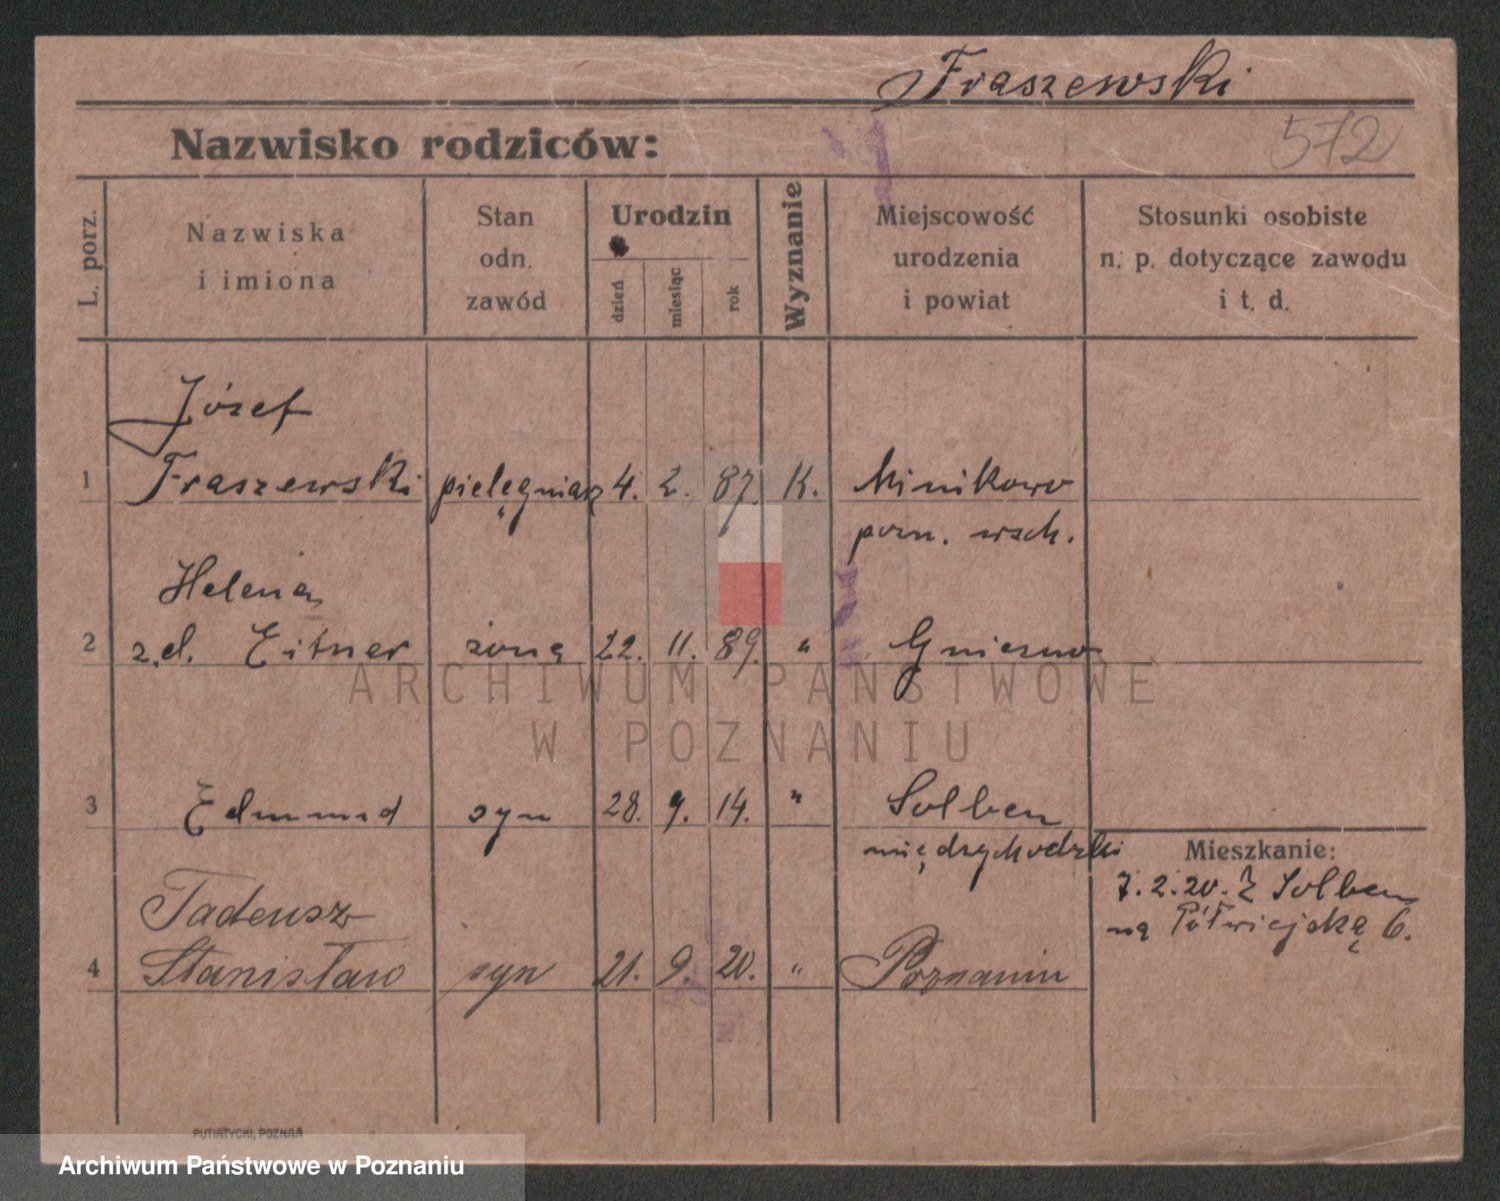 Fraszewski
572
Nazwisko rodziców:
L. porz.
Nazwiska
i imiona
Stan
odn.
zawód
Urodzin
dzień
miesiąc
rok
Wyznanie
Miejscowość
urodzenia
i powiat
Stosunki osobiste
n. p. dotyczące zawodu
i t. d.
Józef
1 Fraszewski pielęgniarz 4. 2. 87. K. Minikowo
pozn. wsch.
Helena
2 z.d. Eitner żona 22. 11. 89. " Gniezno
3 Edmund syn 28. 9. 14. " Solben
międzychodzki
Mieszkanie:
7.2.20. Z Solben
na Półwiejską 6.
Tadeusz
4 Stanisław syn 21. 9. 20. " Poznaniu
PUTIATYCKI, POZNAŃ
ARCHIWUM PAŃSTWOWE
W POZNANIU
Archiwum Państwowe w Poznaniu